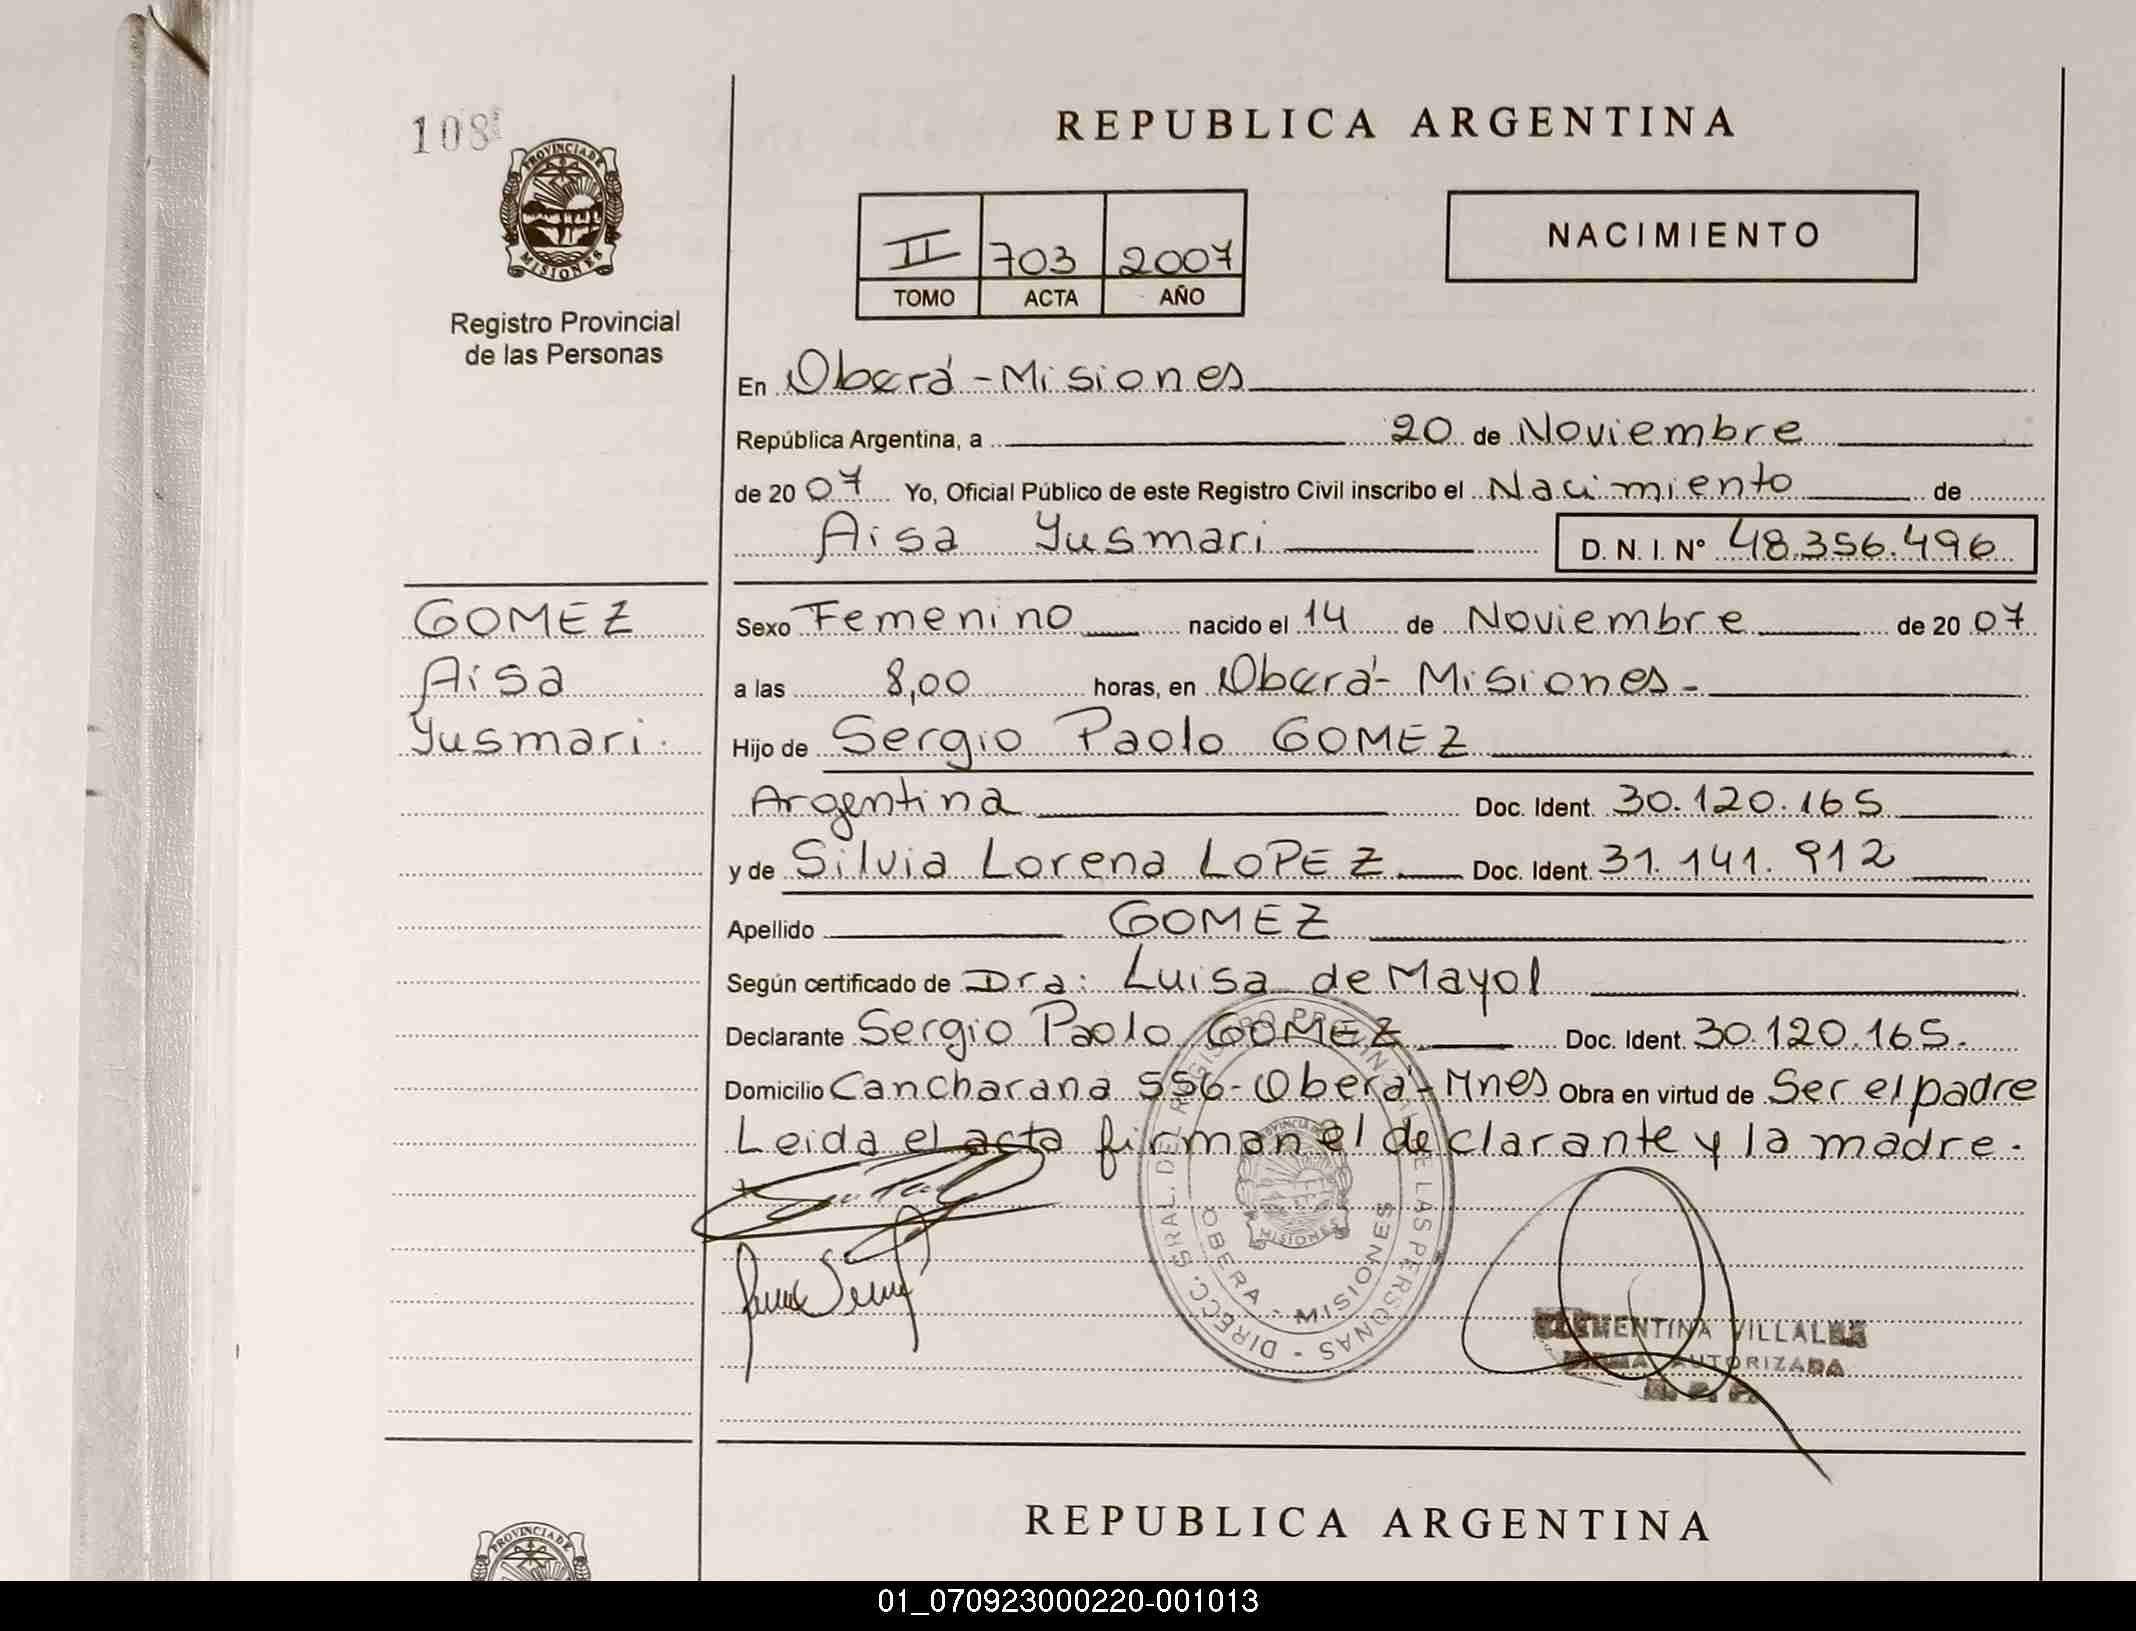 108
PROVINCIA DE
MISIONES
Registro Provincial
de las Personas
REPUBLICA ARGENTINA
II 703 2007
TOMO ACTA AÑO
NACIMIENTO
En Oberá - Misiones
República Argentina, a 20 de Noviembre
de 20 07 Yo, Oficial Público de este Registro Civil inscribo el Nacimiento de
Aisa Yusmari D. N. I. N° 48.356.496
GOMEZ
Aisa
Yusmari.
Sexo Femenino nacido el 14 de Noviembre de 20 07
a las 8,00 horas, en Oberá - Misiones -
Hijo de Sergio Paolo GOMEZ
Argentina Doc. Ident. 30.120.165
y de Silvia Lorena LOPEZ Doc. Ident. 31.141.912
Apellido GOMEZ
Según certificado de Dra: Luisa de Mayol
Declarante Sergio Paolo GOMEZ Doc. Ident. 30.120.165.
Domicilio Cancharana 556 - Oberá - Mnes Obra en virtud de Ser el padre
Leida el acta firman el declarante y la madre.
DIRECC. GRAL. DEL REGISTRO PROVINCIAL DE LAS PERSONAS
OBERA - MISIONES
PROVINCIA DE
MISIONES
CLEMENTINA VILLALBA
FIRMA AUTORIZADA
REPUBLICA ARGENTINA
PROVINCIA DE
01_070923000220-001013